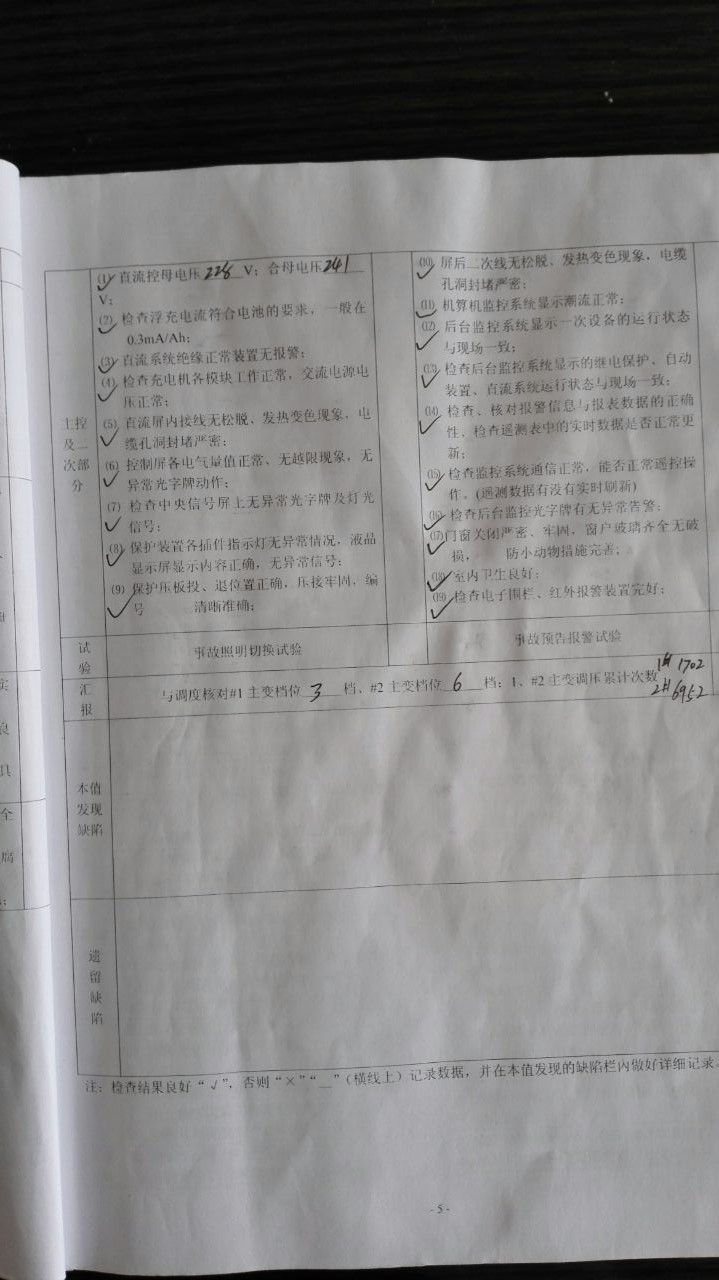 (1) 直流控母电压 228 V；合母电压 241
V；
(2) 检查浮充电流符合电池的要求，一般在
0.3mA/Ah；
(3) 直流系统绝缘正常装置无报警；
(4) 检查充电机各模块工作正常，交流电源电
压正常；
(5) 直流屏内接线无松脱、发热变色现象，电
缆孔洞封堵严密；
(6) 控制屏各电气量值正常、无越限现象，无
异常光字牌动作；
(7) 检查中央信号屏上无异常光字牌及灯光
信号；
(8) 保护装置各插件指示灯无异常情况，液晶
显示屏显示内容正确，无异常信号；
(9) 保护压板投、退位置正确，压接牢固，编
号 清晰准确；
主控
及二
次部
分
(10) 屏后二次线无松脱、发热变色现象，电缆
孔洞封堵严密；
(11) 机算机监控系统显示潮流正常；
(12) 后台监控系统显示一次设备的运行状态
与现场一致；
(13) 检查后台监控系统显示的继电保护、自动
装置、直流系统运行状态与现场一致；
(14) 检查、核对报警信息与报表数据的正确
性、检查遥测表中的实时数据是否正常更
新；
(15) 检查监控系统通信正常，能否正常遥控操
作。(遥测数据有没有实时刷新)
(16) 检查后台监控光字牌有无异常告警；
(17) 门窗关闭严密、牢固，窗户玻璃齐全无破
损， 防小动物措施完善；
(18) 室内卫生良好；
(19) 检查电子围栏、红外报警装置完好；
试
验
事故照明切换试验
事故预告报警试验
汇
报
与调度核对#1 主变档位 3 档、#2 主变档位 6 档；1、#2 主变调压累计次数 1# 1702
2# 6952
本值
发现
缺陷
遗
留
缺
陷
注：检查结果良好“√”，否则“×”“__”（横线上）记录数据，并在本值发现的缺陷栏内做好详细记录。
- 5 -
实
良
具
全
腐